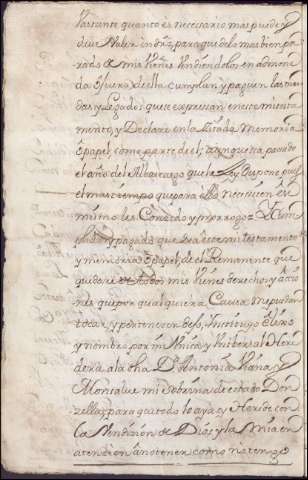 bastante quanto es necesario mas puede y
deve Valer en dro, para que de lo mas bien pa
rado de mis Vienes Vendiendolos en Almone
da o fuera de ella cumplan, y paguen las man
das y Legados que se expresan en este mi testa
mento, y Declare en la Zitada Memoria
o papel, como parte de el; aunque sea pasado
el año del Albazeazgo que la Ley dispone pues
el mas tiempo que para ello necesiten el
mismo les Concedo y prorrogo Y Cum
plido y pagado que sea este mi testamento
y memoria o papel, de el Remanente que
quedare de todos mis Vienes derechos y Accio
nes que por qualquiera Causa me puedan
tocar, y pertenecer, dejo, Instituyo, Elixo
y nombro por mi Unica y Universal Here
dera a la dha Da Antonia Viana y
Monsalve mi Sobrina de estado Don
zella, para que todo lo aya, y Herede con
la Vendizion de Dios y la mia en
atenzion a no tener como no tengo